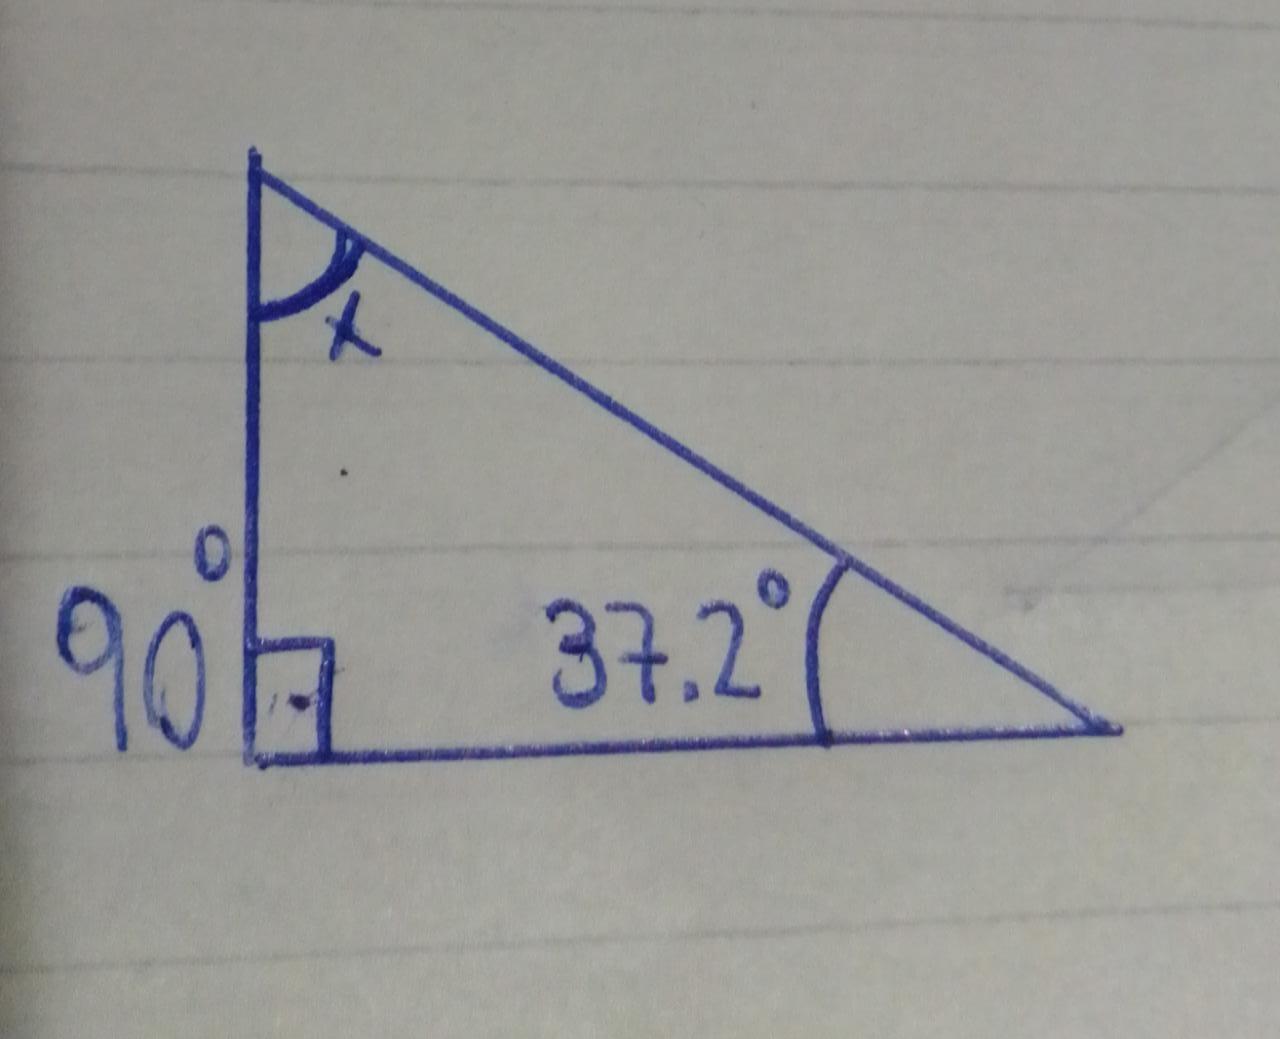 x
90°
37.2°